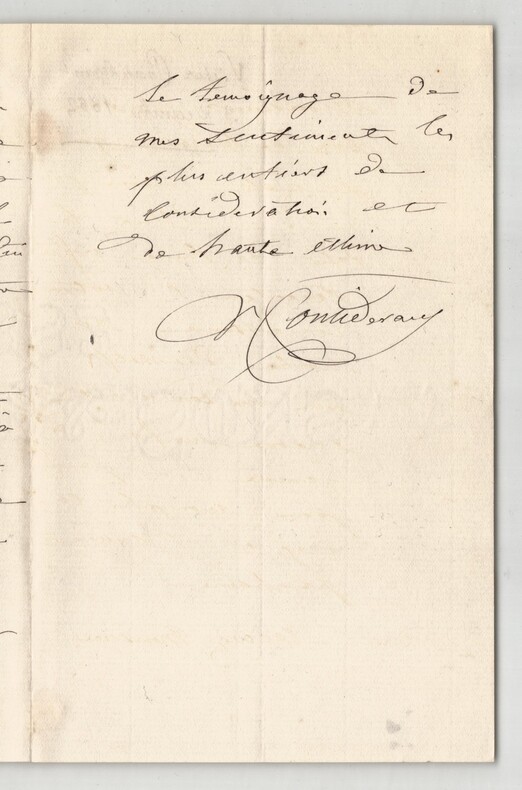 le temoignage de
mes sentiments les
plus entiers de
consideration et
de haute estime
V Considerant